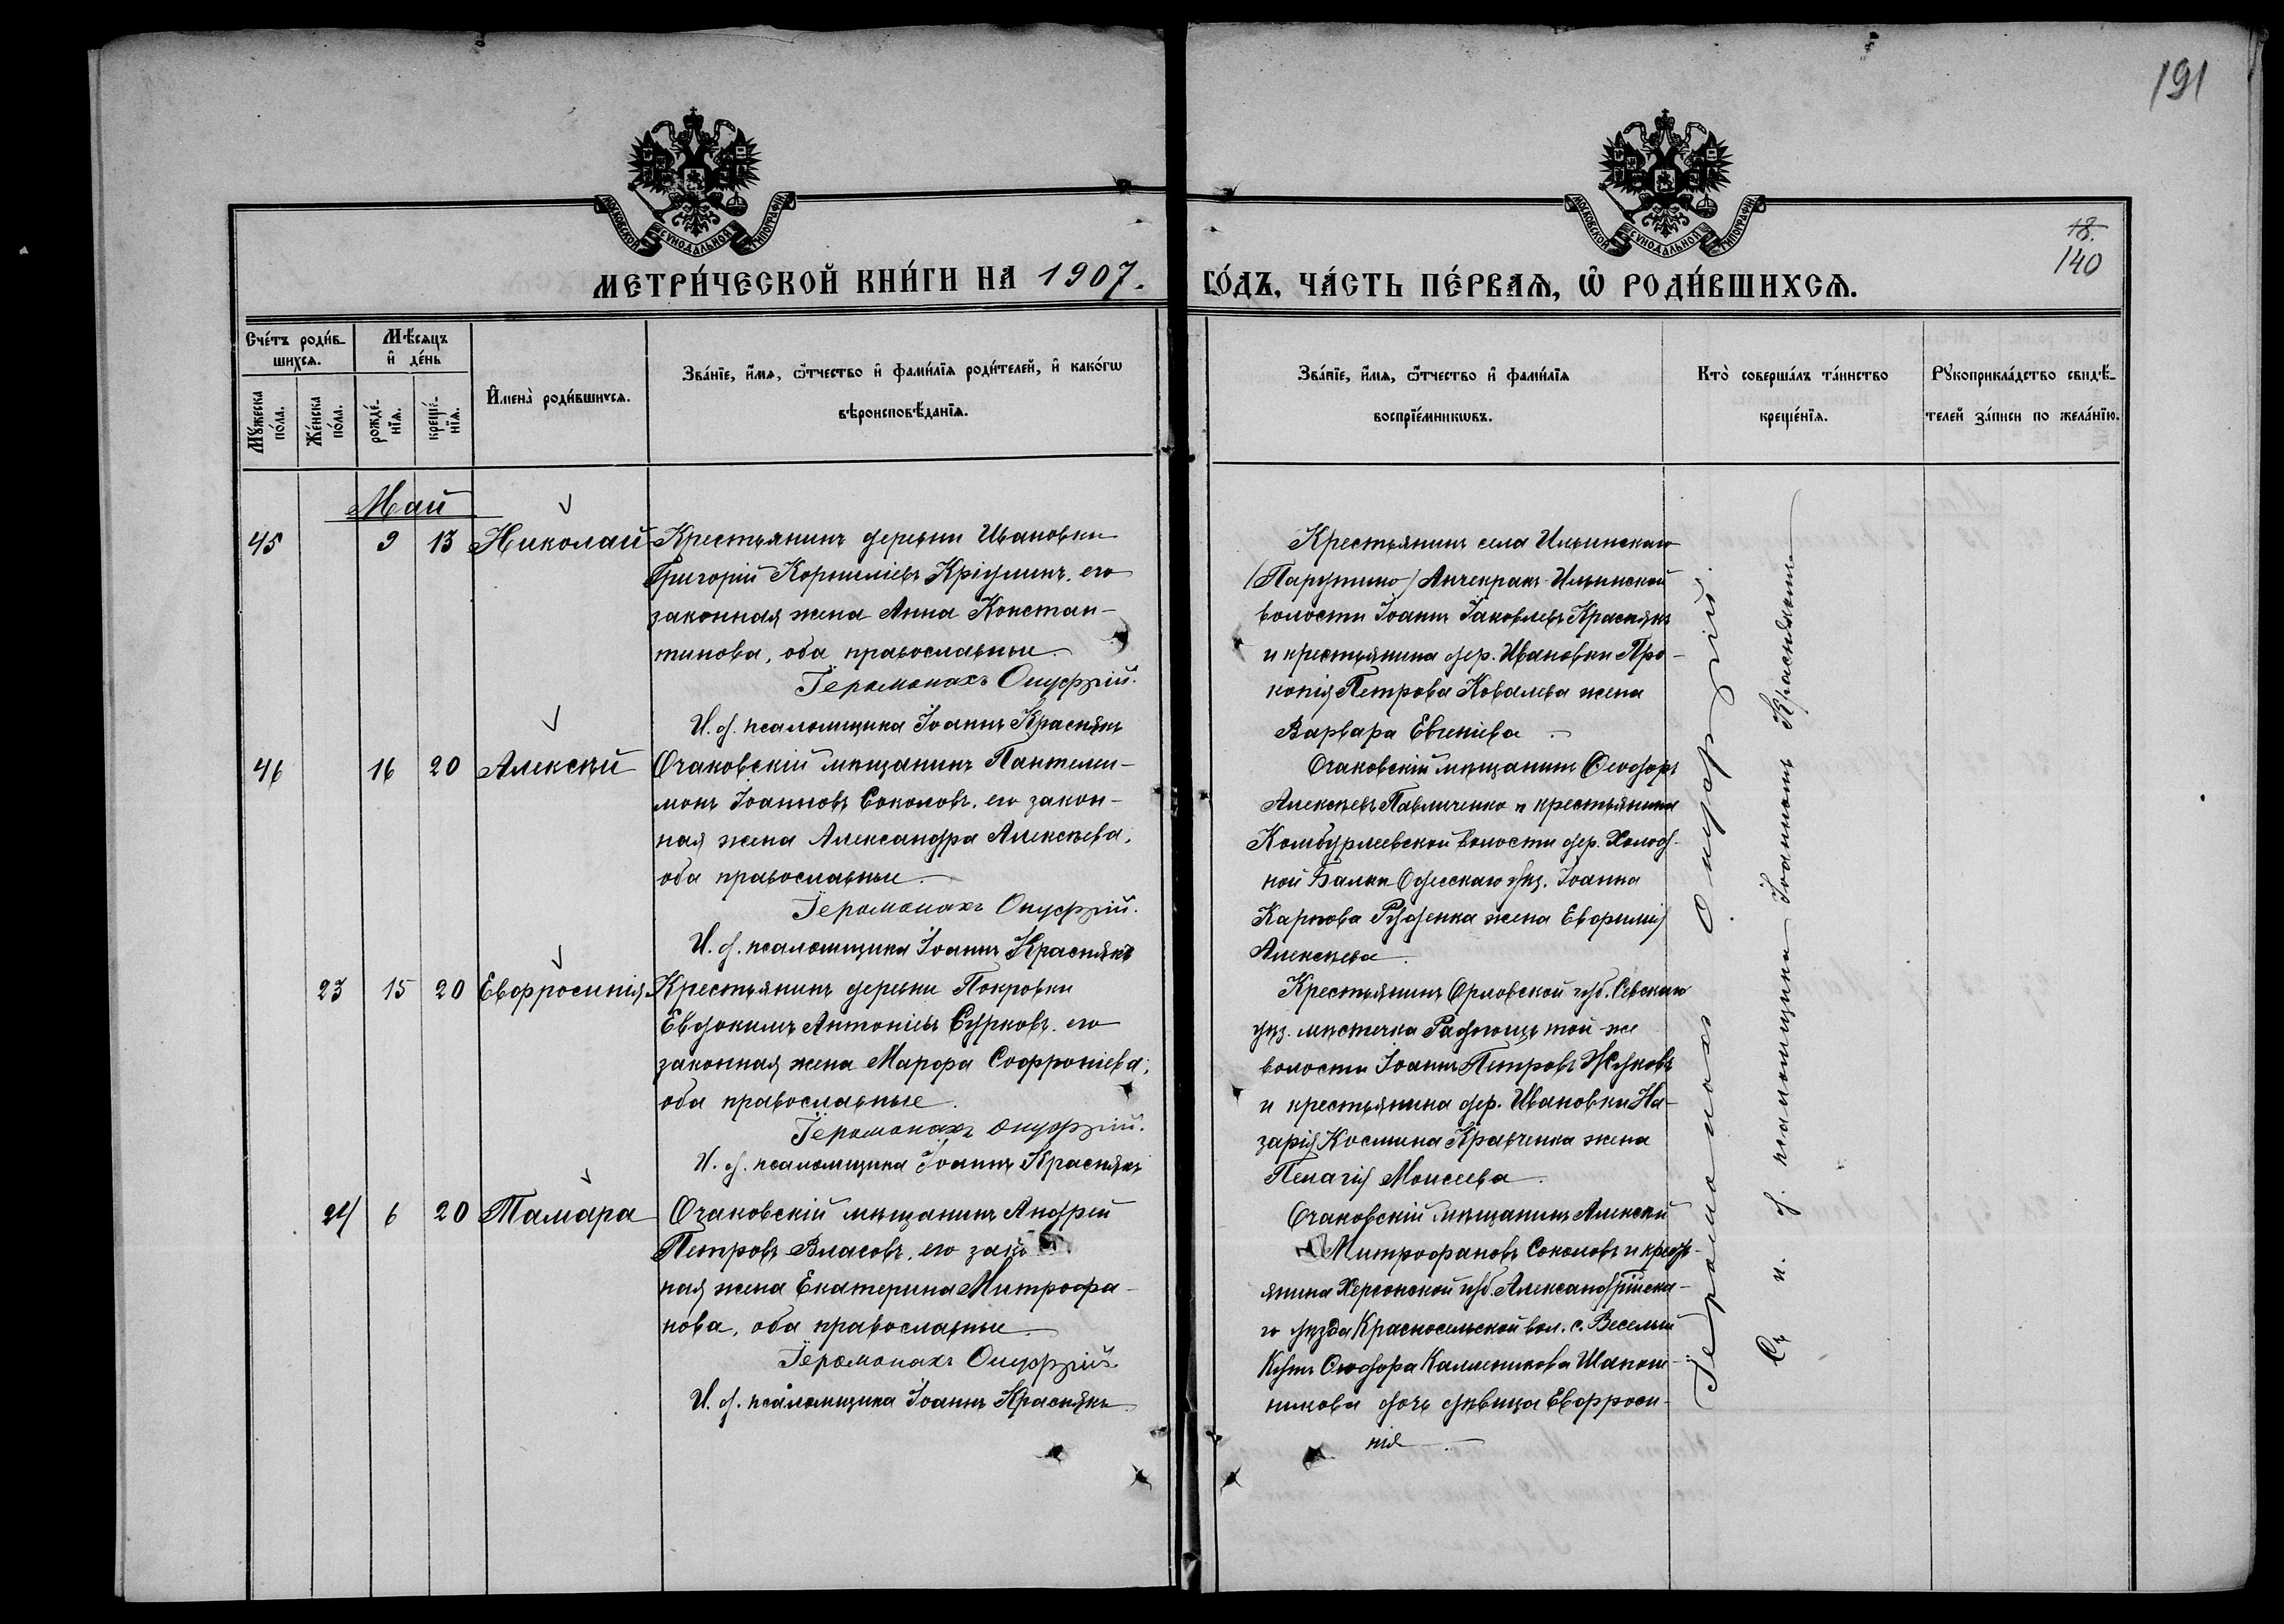 191
МОСКОВСКОЙ СѴНОДАЛЬНОЙ ТИПОГРАФІИ
МОСКОВСКОЙ СѴНОДАЛЬНОЙ ТИПОГРАФІИ
18.
140
МЕТРИ́ЧЕСКОЙ КНИ́ГИ НА 1907.
ГО́ДЪ, ЧА́СТЬ ПЕ́РВАѦ, Ѡ҆ РОДИ́ВШИХСѦ.
Сче́тъ роди́в-
шихсѧ.
Мѣсѧцъ
и҆ де́нь
Мꙋ́жеска
по́ла.
Же́нска
по́ла.
рожде́-
нїѧ.
креще́-
нїѧ.
И҆мена̀ роди́вшихсѧ.
Зва́нїе, и҆́мѧ, ѻ҆́тчество и҆ фами́лїѧ роди́телей, и҆ како́гѡ
вѣроисповѣ́данїѧ.
Зва́нїе, и҆́мѧ, ѻ҆́тчество и҆ фами́лїѧ
воспрїе́мникѡвъ.
Кто̀ соверша́лъ та́инство
креще́нїѧ.
Рꙋкоприкла́дство свидѣ́-
телей за́писи по жела́нїю.
Май
45 9 13 Николай Крестьянинъ деревни Ивановки
Григорій Корниліевъ Крицлинъ, его
законная жена Анна Констан-
тинова, оба православные.
Іеромонахъ Онуфрій.
И. д. псаломщика Іоаннъ Краснякъ
Крестьянинъ села Ильинскаго
(Парутино) Анчекракъ-Ильинской
волости Іоаннъ Іаковлевъ Краснякъ
и крестьянина дер. Ивановки Про-
копія Петрова Ковалева жена
Варвара Евгеніева.
46 16 20 Алексѣй Очаковскій мѣщанинъ Пантелеи-
монъ Іоанновъ Соколовъ, его закон-
ная жена Александра Алексѣева,
оба православные
Іеромонахъ Онуфрій.
И. д. псаломщика Іоаннъ Краснякъ
Очаковскій мѣщанинъ Ѳеодоръ
Алексѣевъ Павличенко и крестьянина
Комбурлеевской волости дер. Холод-
ной Балки Одесскаго уѣз. Іоанна
Карпова Руденка жена Евфимія
Алексѣева.
23 15 20 Евфросинія Крестьянинъ деревни Покровки
Евдокимъ Антоніевъ Сурковъ, его
законная жена Марфа Софроніева,
оба православные.
Іеромонахъ Онуфрій.
И. д. псаломщика Іоаннъ Краснякъ
Крестьянинъ Орловской губ. Севскаго
уѣз. мѣстечка Радогощь той-же
волости Іоаннъ Петровъ Жуковъ
и крестьянина дер. Ивановки На-
зарія Космина Кравченка жена
Пелагія Моисеева.
24 6 20 Тамара Очаковскій мѣщанинъ Андрей
Петровъ Власовъ, его зако
ная жена Екатерина Митрофа-
нова, оба православные
Іеромонахъ Онуфрій.
И. д. псаломщика Іоаннъ Краснякъ
Очаковскій мѣщанинъ Алексѣй
Митрофановъ Соколовъ и кресть-
янина Херсонской губ. Александрійска-
го уѣзда Красносельской вол. с. Веселый
Кутъ Ѳеодора Каллиникова Шапош-
никова дочь дѣвица Евфроси-
нія
Іеромонахъ Онуфрій.
Съ и. д. псаломщика Іоанномъ Краснякомъ